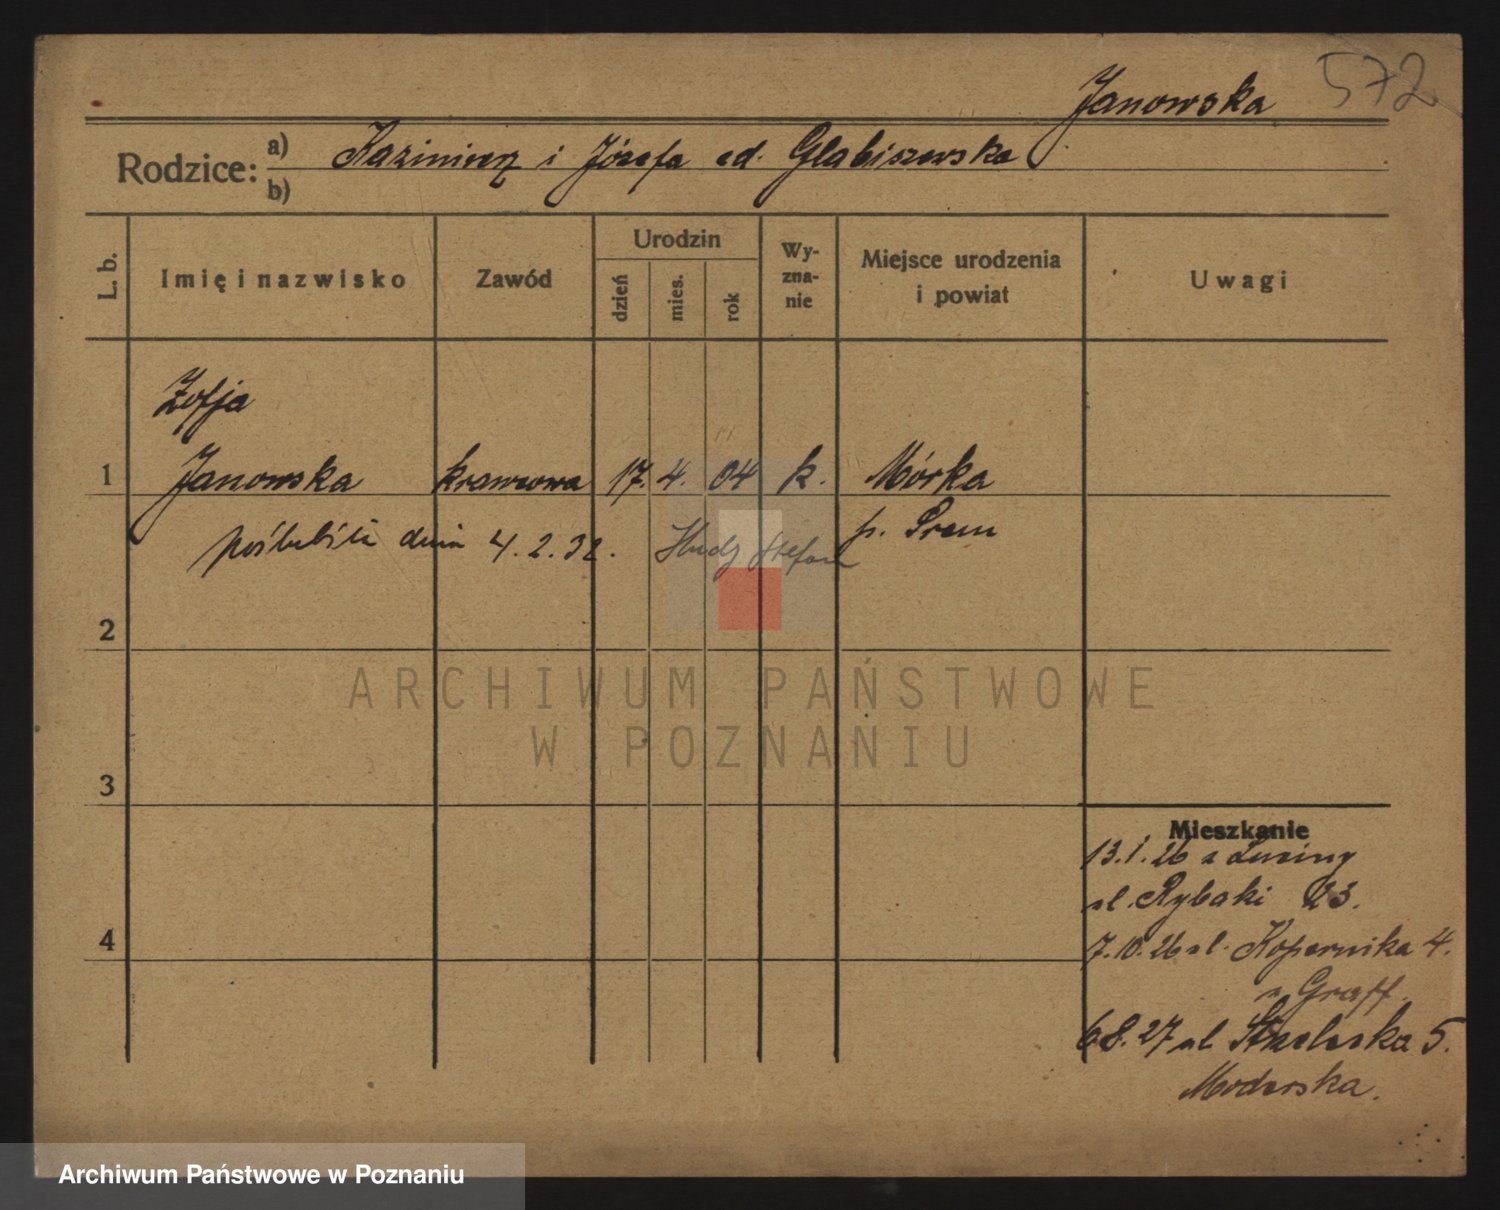 572
Janowska
Rodzice: a) Kazimierz i Józefa ed. Glabiszewska
b)
L. b.
Imię i nazwisko
Zawód
Urodzin
dzień
mies.
rok
Wy-
zna-
nie
Miejsce urodzenia
i powiat
Uwagi
Zofja
1 Janowska krawcowa 17. 4. 04 k. Mórka
p. Śrem
dnia 4.2.32. Stefan
2
3
4
Mieszkanie
13.1.26 z
ul. Rybaki 23.
7.10.26 ul. Kopernika 4.
Graff.
6.8.27 ul Strzelecka 5.
Moderska.
ARCHIWUM PAŃSTWOWE
W POZNANIU
Archiwum Państwowe w Poznaniu